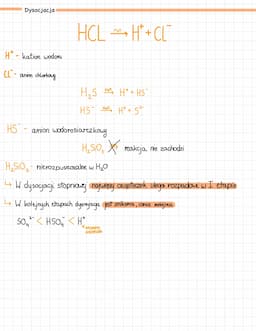 Dysocjacja
HCL →(H₂O) H⁺ + CL⁻
H⁺ - kation wodoru
CL⁻ - anion chlorkowy
H₂S →(H₂O) H⁺ + HS⁻
HS⁻ →(H₂O) H⁺ + S²⁻
HS⁻ - anion wodorosiarczkowy
H₂SiO₃ reakcja nie zachodzi
H₂SiO₃ - nierozpuszczalne w H₂O
↳ W dysocjacji stopniowej najwięcej cząsteczek ulega rozpadowi w I etapie
↳ W kolejnych etapach dysocjacja jest znikoma, coraz mniejsza
SO₄²⁻ < HSO₄⁻ < H⁺